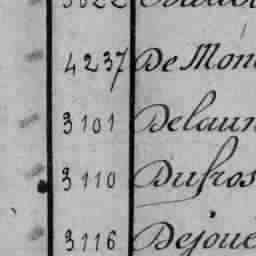 4237 De Mon
3101 Delaun
3110 Dufros
3116 Dejoue